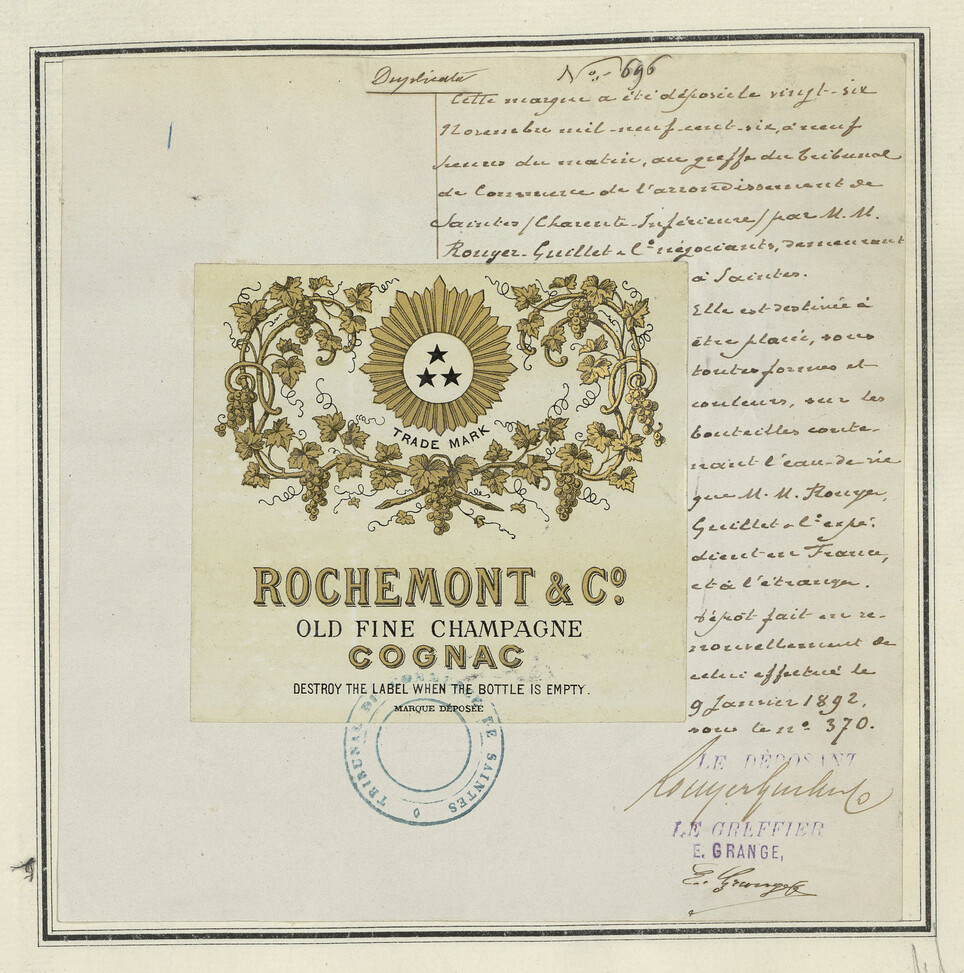 Duplicata
No. 696
Cette marque a été déposée le vingt-six
Novembre mil-neuf-cent-six, à neuf
heures du matin, au greffe du tribunal
de Commerce de l'arrondissement de
Saintes (Charente-Inférieure) par M.M.
Rouyer-Guillet & Cie négociants, demeurant
à Saintes.
Elle est destinée à
être placée, sous
toutes formes et
couleurs, sur les
bouteilles conte-
nant l'eau-de-vie
que M.M. Rouyer,
Guillet & Cie expé-
dient en France,
et à l'étranger.
Dépôt fait en re-
nouvellement de
celui effectué le
9 Janvier 1892,
sous le no. 370.
TRADE MARK
ROCHEMONT & Co
OLD FINE CHAMPAGNE
COGNAC
DESTROY THE LABEL WHEN THE BOTTLE IS EMPTY.
MARQUE DÉPOSÉE
TRIBUNAL DE COMMERCE DE SAINTES
LE DÉPOSANT
Rouyer Guillet & Co
LE GREFFIER
E. GRANGE,
E. Grange